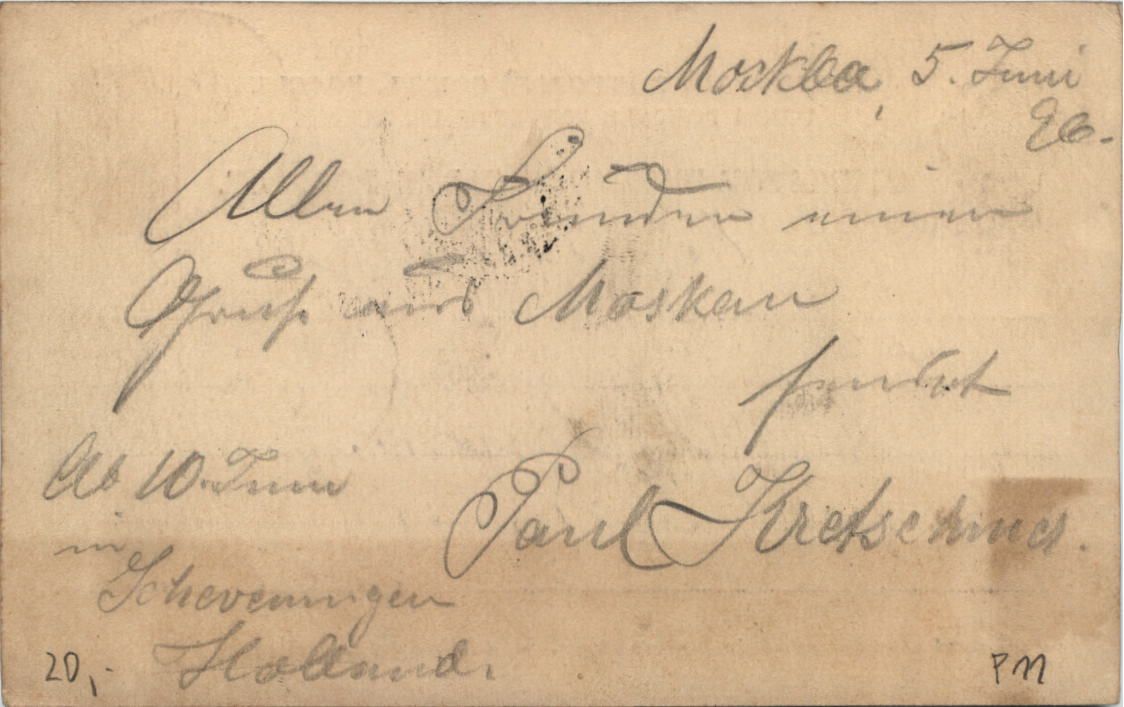 Москва, 5. Juni
96.
Allen Freunden einen
Gruß aus Moskau
sendet
Ab 10. Juni
in
Scheveningen
Holland.
Paul Kretschmer.
20,-
P 11